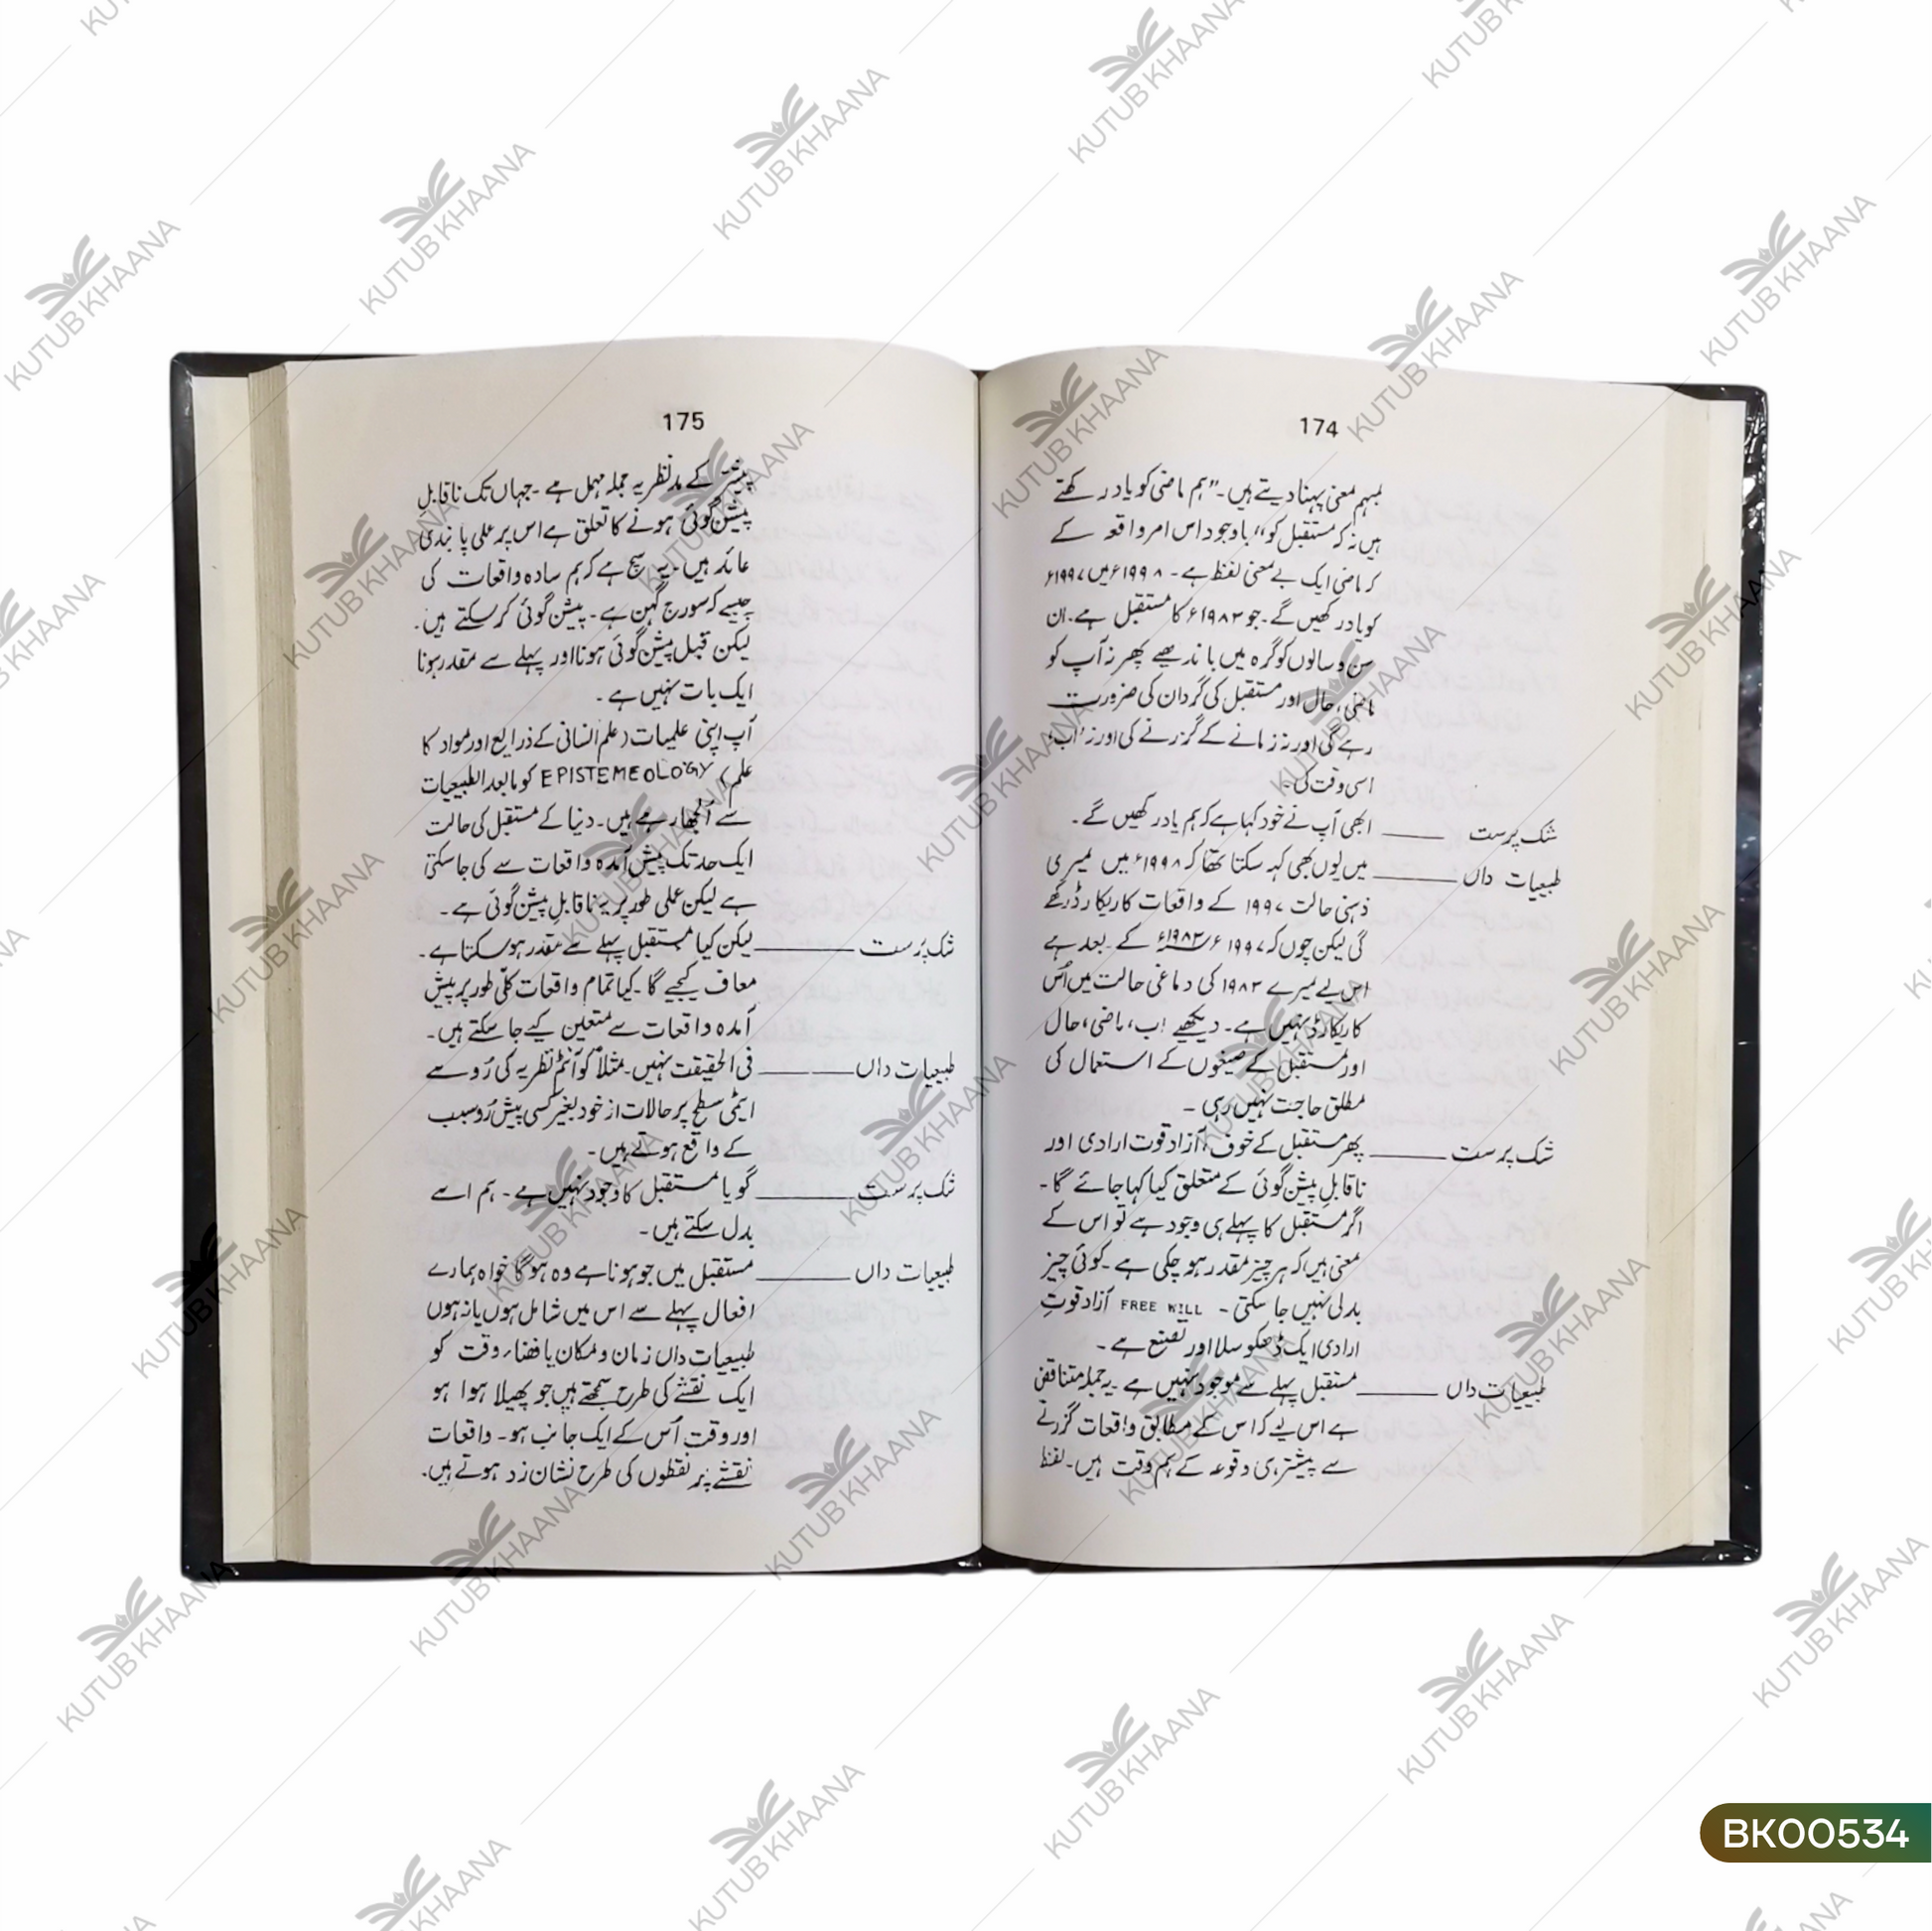 174
مبہم معنی پہنا دیتے ہیں۔ "ہم ماضی کو یاد رکھتے
ہیں نہ کہ مستقبل کو" باوجود اس امر واقعہ کے
کہ ماضی ایک بے معنی لفظ ہے۔ ۱۹۹۸ء میں ۱۹۹۷ء
کو یاد رکھیں گے۔ جو ۱۹۸۳ء کا مستقبل ہے۔ ان
سن و سالوں کو گرہ میں باندھیے پھر نہ آپ کو
ماضی، حال اور مستقبل کی گردان کی ضرورت
رہے گی اور نہ زمانے کے گزرنے کی اور نہ 'اب'
اسی وقت کی۔
شک پرست ــــــ ابھی آپ نے خود کہا ہے کہ ہم یاد رکھیں گے۔
طبیعیات داں ــــــ میں یوں بھی کہہ سکتا تھا کہ ۱۹۹۸ء میں میری
ذہنی حالت ۱۹۹۷ کے واقعات کا ریکارڈ رکھے
گی لیکن چوں کہ ۱۹۹۷ء ۱۹۸۳ء کے بعد ہے
اس لیے میرے ۱۹۸۳ کی دماغی حالت میں اُس
کا ریکارڈ نہیں ہے۔ دیکھیے اب، ماضی، حال
اور مستقبل کے صیغوں کے استعمال کی
مطلق حاجت نہیں رہی۔
شک پرست ــــــ پھر مستقبل کے خوف، آزاد قوت ارادی اور
ناقابلِ پیش گوئی کے متعلق کیا کہا جائے گا۔
اگر مستقبل کا پہلے ہی وجود ہے تو اس کے
معنی ہیں کہ ہر چیز مقدر ہو چکی ہے۔ کوئی چیز
بدلی نہیں جا سکتی۔ FREE WILL آزاد قوتِ
ارادی ایک ڈھکوسلا اور تصنع ہے۔
طبیعیات داں ــــــ مستقبل پہلے سے موجود نہیں ہے یہ جملہ متناقض
ہے اس لیے کہ اس کے مطابق واقعات گزرنے
سے پیشتر ہی وقوعہ کے ہم وقت ہیں۔ لفظ
175
پیشتر کے مدنظر یہ جملہ مہمل ہے۔ جہاں تک ناقابلِ
پیش گوئی ہونے کا تعلق ہے اس پر عملی پابندی
عائد ہیں۔ یہ سچ ہے کہ ہم سادہ واقعات کی
جیسے کہ سورج گہن ہے۔ پیش گوئی کر سکتے ہیں۔
لیکن قبل پیش گوئی ہونا اور پہلے سے مقدر ہونا
ایک بات نہیں ہے۔
آپ اپنی علمیات (علم انسانی کے ذرایع اور مواد کا
علم) EPISTEMEOLOGY کو مابعد الطبیعیات
سے اُلجھا رہے ہیں۔ دنیا کے مستقبل کی حالت
ایک حد تک پیش آمدہ واقعات سے کی جا سکتی
ہے لیکن عملی طور پر یہ ناقابلِ پیش گوئی ہے۔
شک پرست ــــــ لیکن کیا مستقبل پہلے سے مقدر ہو سکتا ہے۔
معاف کیجیے گا۔ کیا تمام واقعات کلّی طور پر پیش
آمدہ واقعات سے متعین کیے جا سکتے ہیں۔
طبیعیات داں ــــــ فی الحقیقت نہیں۔ مثلاً کوانٹم نظریہ کی رُو سے
ایٹمی سطح پر حالات از خود بغیر کسی پیش رَو سبب
کے واقع ہوتے ہیں۔
شک پرست ــــــ گویا مستقبل کا وجود نہیں ہے۔ ہم اسے
بدل سکتے ہیں۔
طبیعیات داں ــــــ مستقبل میں جو ہونا ہے وہ ہو گا خواہ ہمارے
افعال پہلے سے اس میں شامل ہوں یا نہ ہوں
طبیعیات داں زمان و مکان یا فضا، وقت کو
ایک نقشے کی طرح سمجھتے ہیں جو پھیلا ہوا ہو
اور وقت اُس کے ایک جانب ہو۔ واقعات
نقشے پر نقطوں کی طرح نشان زد ہوتے ہیں۔
BK00534
KUTUB KHAANA